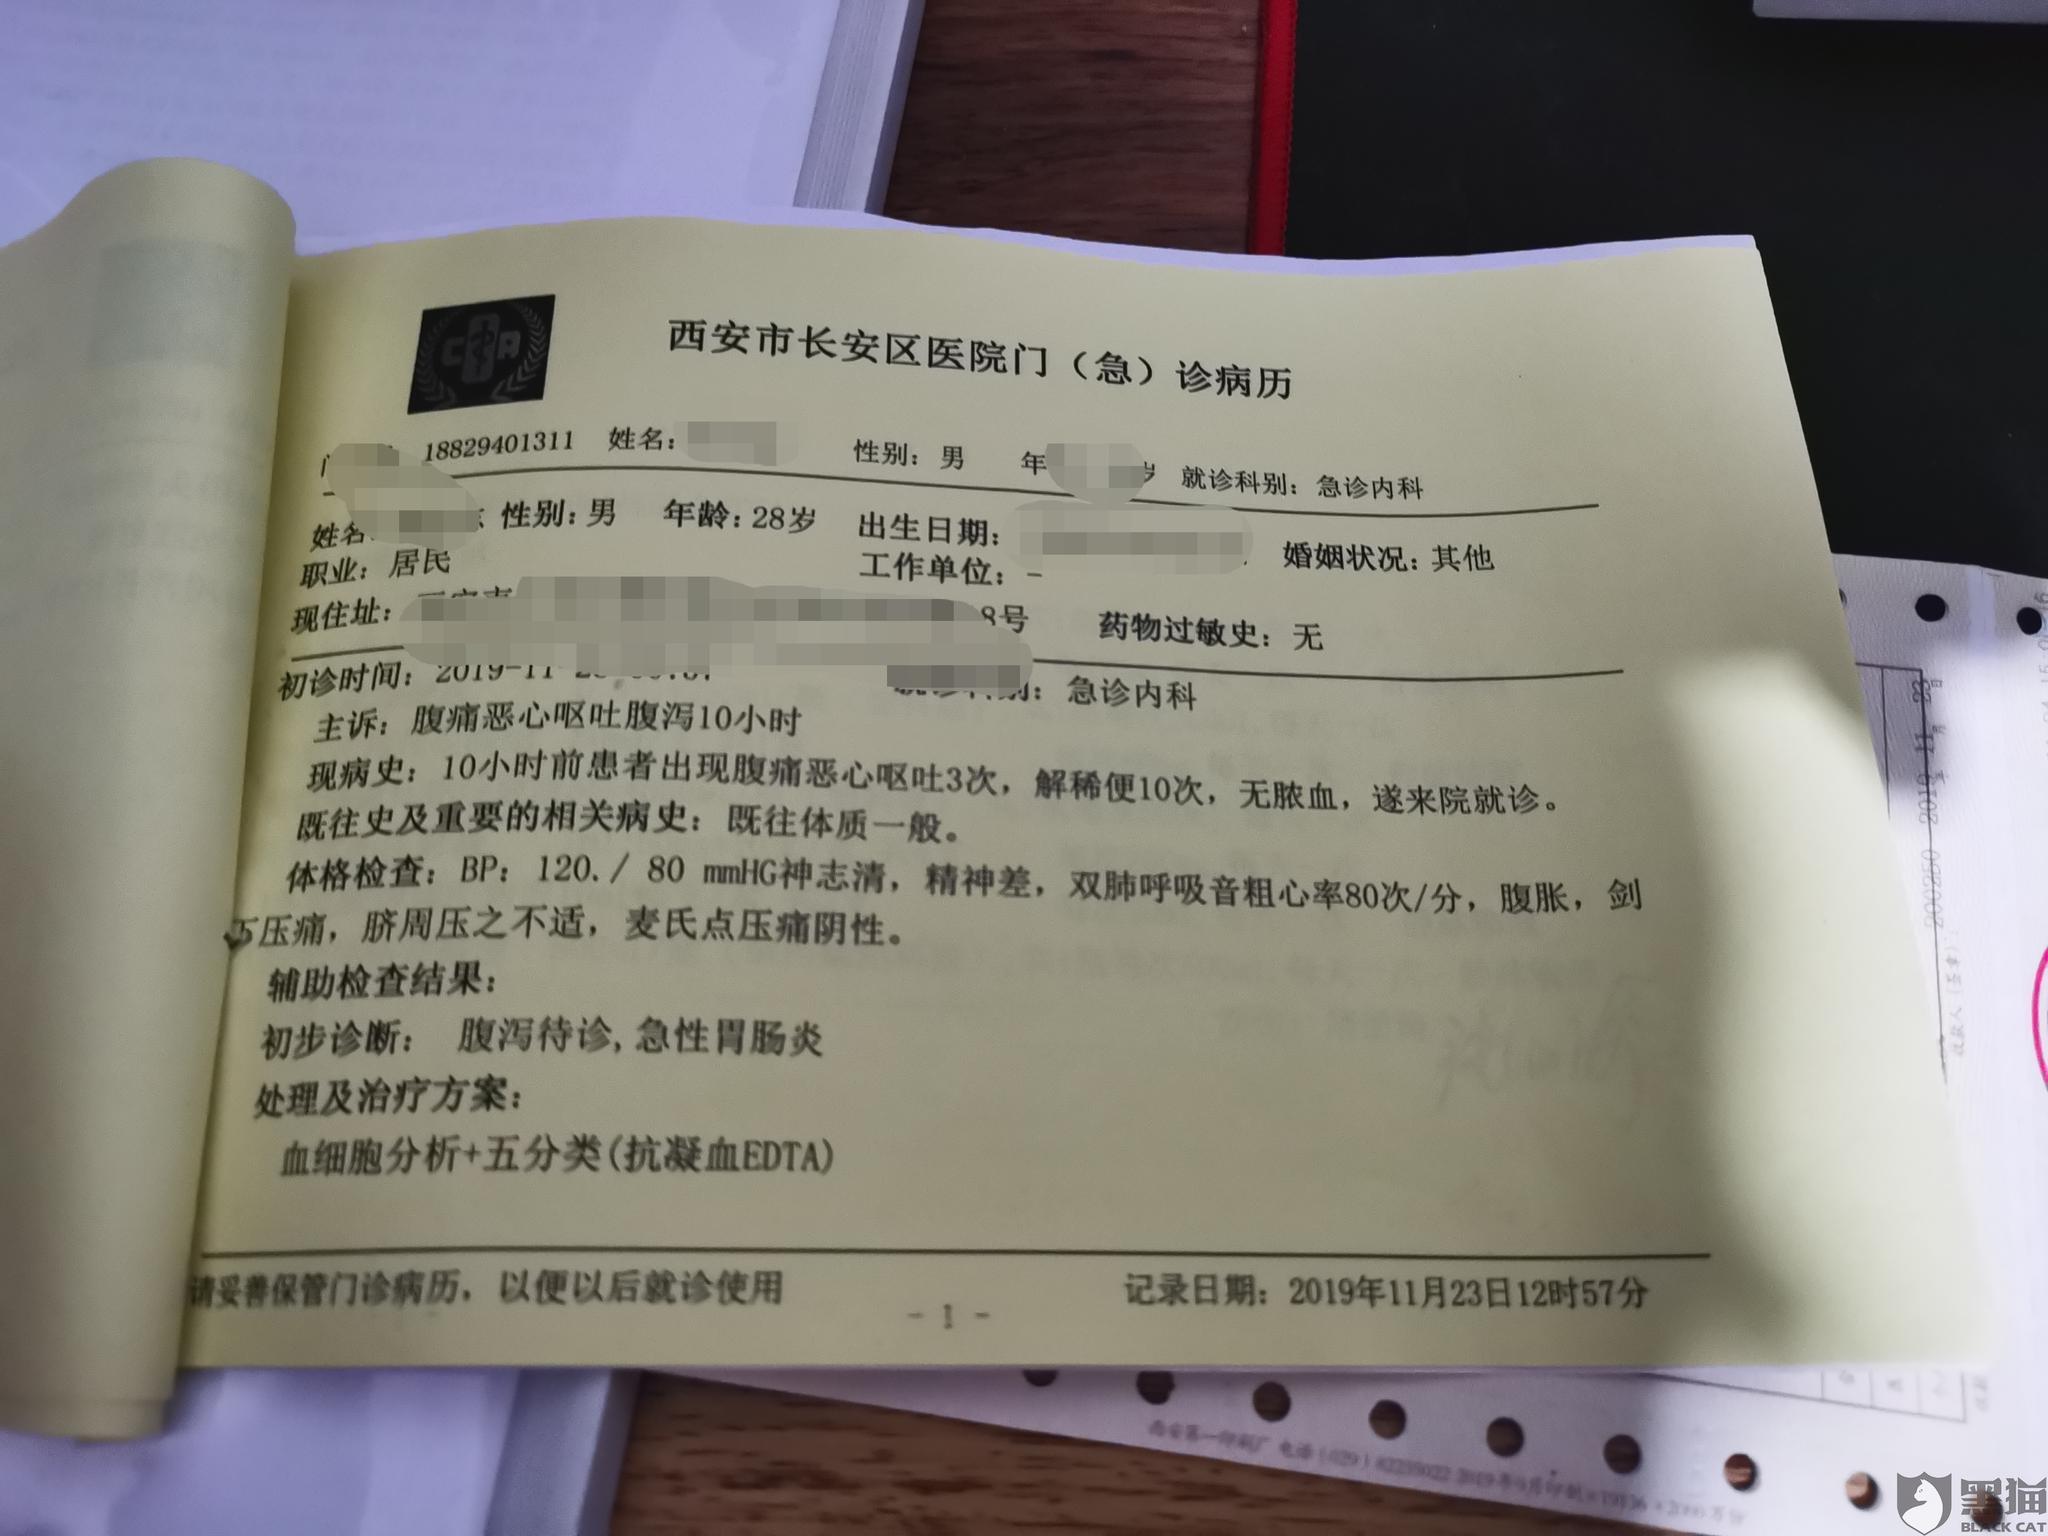 西安市长安区医院门（急）诊病历
18829401311 姓名: 性别: 男 年 岁 就诊科别: 急诊内科
姓名 性别: 男 年龄: 28岁 出生日期: 婚姻状况: 其他
职业: 居民 工作单位: -
现住址: 8号 药物过敏史: 无
初诊时间: 2019-11- 急诊内科
主诉: 腹痛恶心呕吐腹泻10小时
现病史: 10小时前患者出现腹痛恶心呕吐3次，解稀便10次，无脓血，遂来院就诊。
既往史及重要的相关病史: 既往体质一般。
体格检查: BP: 120./ 80 mmHG神志清，精神差，双肺呼吸音粗心率80次/分，腹胀，剑
下压痛，脐周压之不适，麦氏点压痛阴性。
辅助检查结果:
初步诊断: 腹泻待诊,急性胃肠炎
处理及治疗方案:
血细胞分析+五分类(抗凝血EDTA)
请妥善保管门诊病历，以便以后就诊使用
- 1 -
记录日期: 2019年11月23日12时57分
黑猫
BLACK CAT